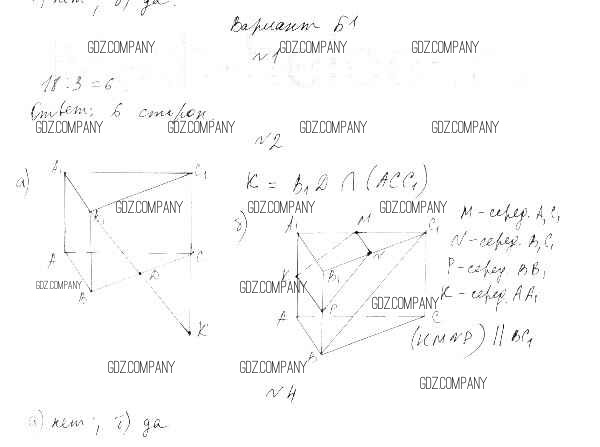 а) нет; б) да.
Вариант Б1
GDZ.COMPANY GDZ.COMPANY GDZ.COMPANY
№1
18 : 3 = 6
Ответ: 6 сторон.
GDZ.COMPANY GDZ.COMPANY GDZ.COMPANY GDZ.COMPANY
№2
а)
A₁ C₁ B₁ A C B D K
K = B₁D ∩ (ACC₁)
GDZ.COMPANY GDZ.COMPANY
б)
A₁ M C₁ N B₁ K P A C B
M – серед. A₁C₁
N – серед. B₁C₁
P – серед. BB₁
K – серед. AA₁
GDZ.COMPANY GDZ.COMPANY GDZ.COMPANY
(KMNP) || BC₁
GDZ.COMPANY GDZ.COMPANY GDZ.COMPANY
№4
а) нет; б) да